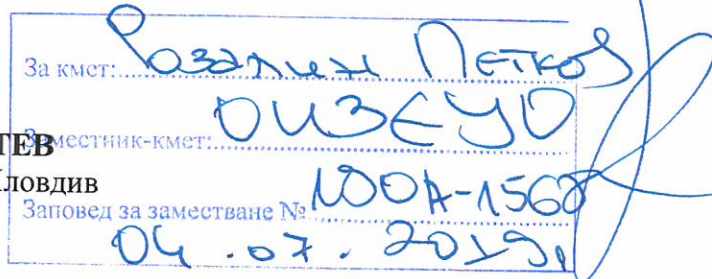 За кмет: Розалин Петков
Заместник-кмет: ОИЗЕУО
ТЕВ
ловдив
Заповед за заместване №
04.07.2019г.